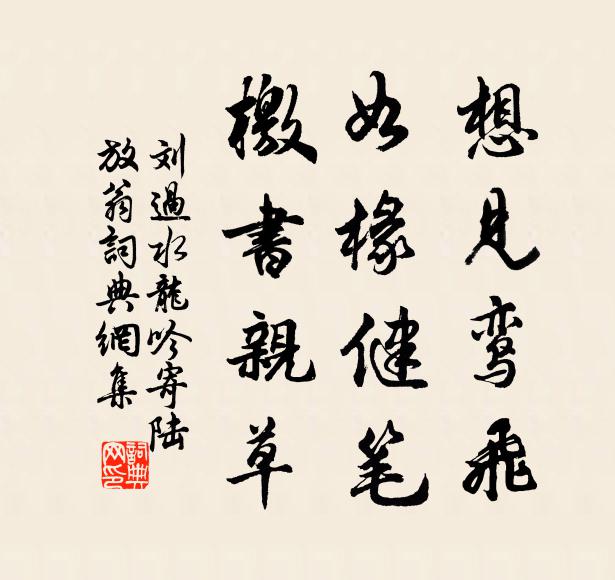 想见鸾飞
如椽健笔
檄書親草
刘過水龍吟寄陆
放翁詞典網集
詞典
网印